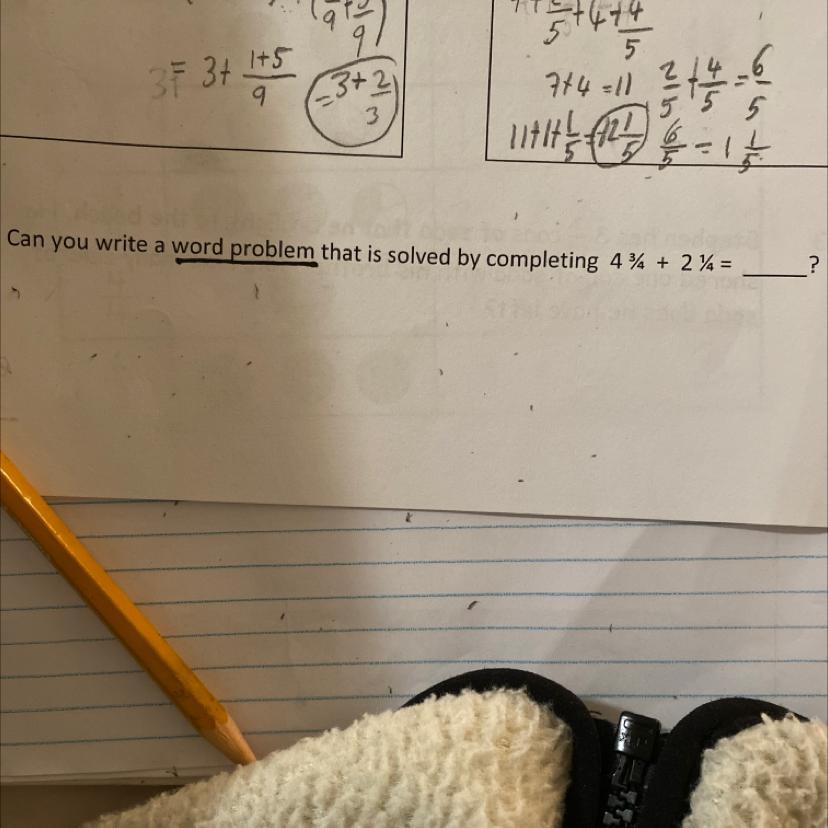 = 3+ 1+5/9 = 3+ 2/3
+4+4/5
7+4 =11 2/5 + 4/5 = 6/5
11+1+1/5 = 12 1/5 6/5 = 1 1/5
Can you write a word problem that is solved by completing 4 ¾ + 2 ¼ = ______?